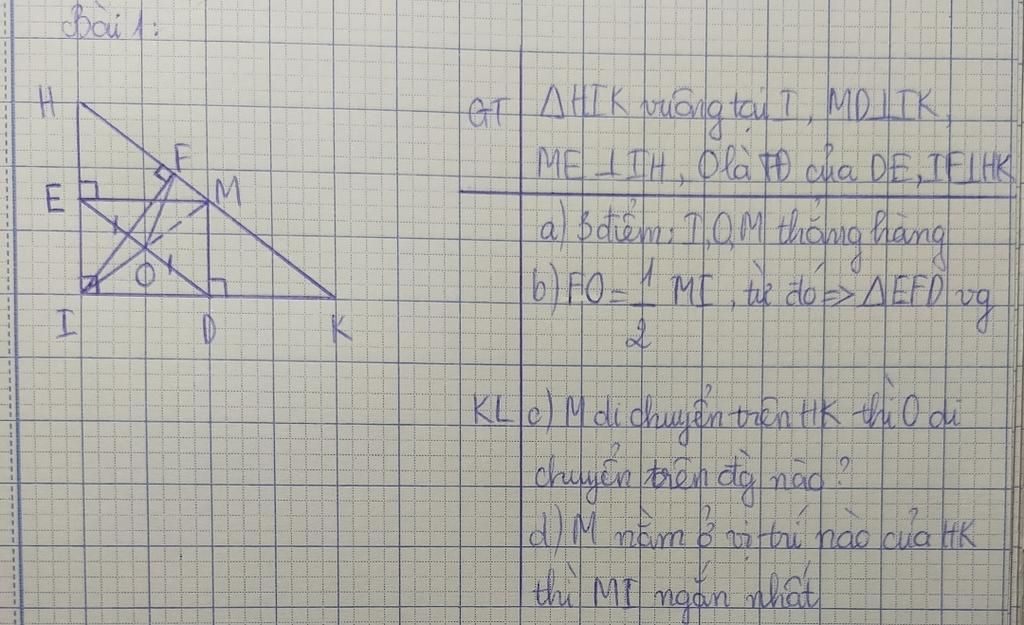 Bài 1:
H
F
E
M
O
I
D
K
GT
ΔHIK vuông tại I, MD⊥IK,
ME⊥IH, O là TĐ của DE, IF⊥HK
a) 3 điểm: I,O,M thẳng hàng
b) FO = 1/2 MI, từ đó => ΔEFD vg
KL
c) M di chuyển trên HK thì O di
chuyển trên đg nào?
d) M nằm ở vị trí nào của HK
thì MI ngắn nhất